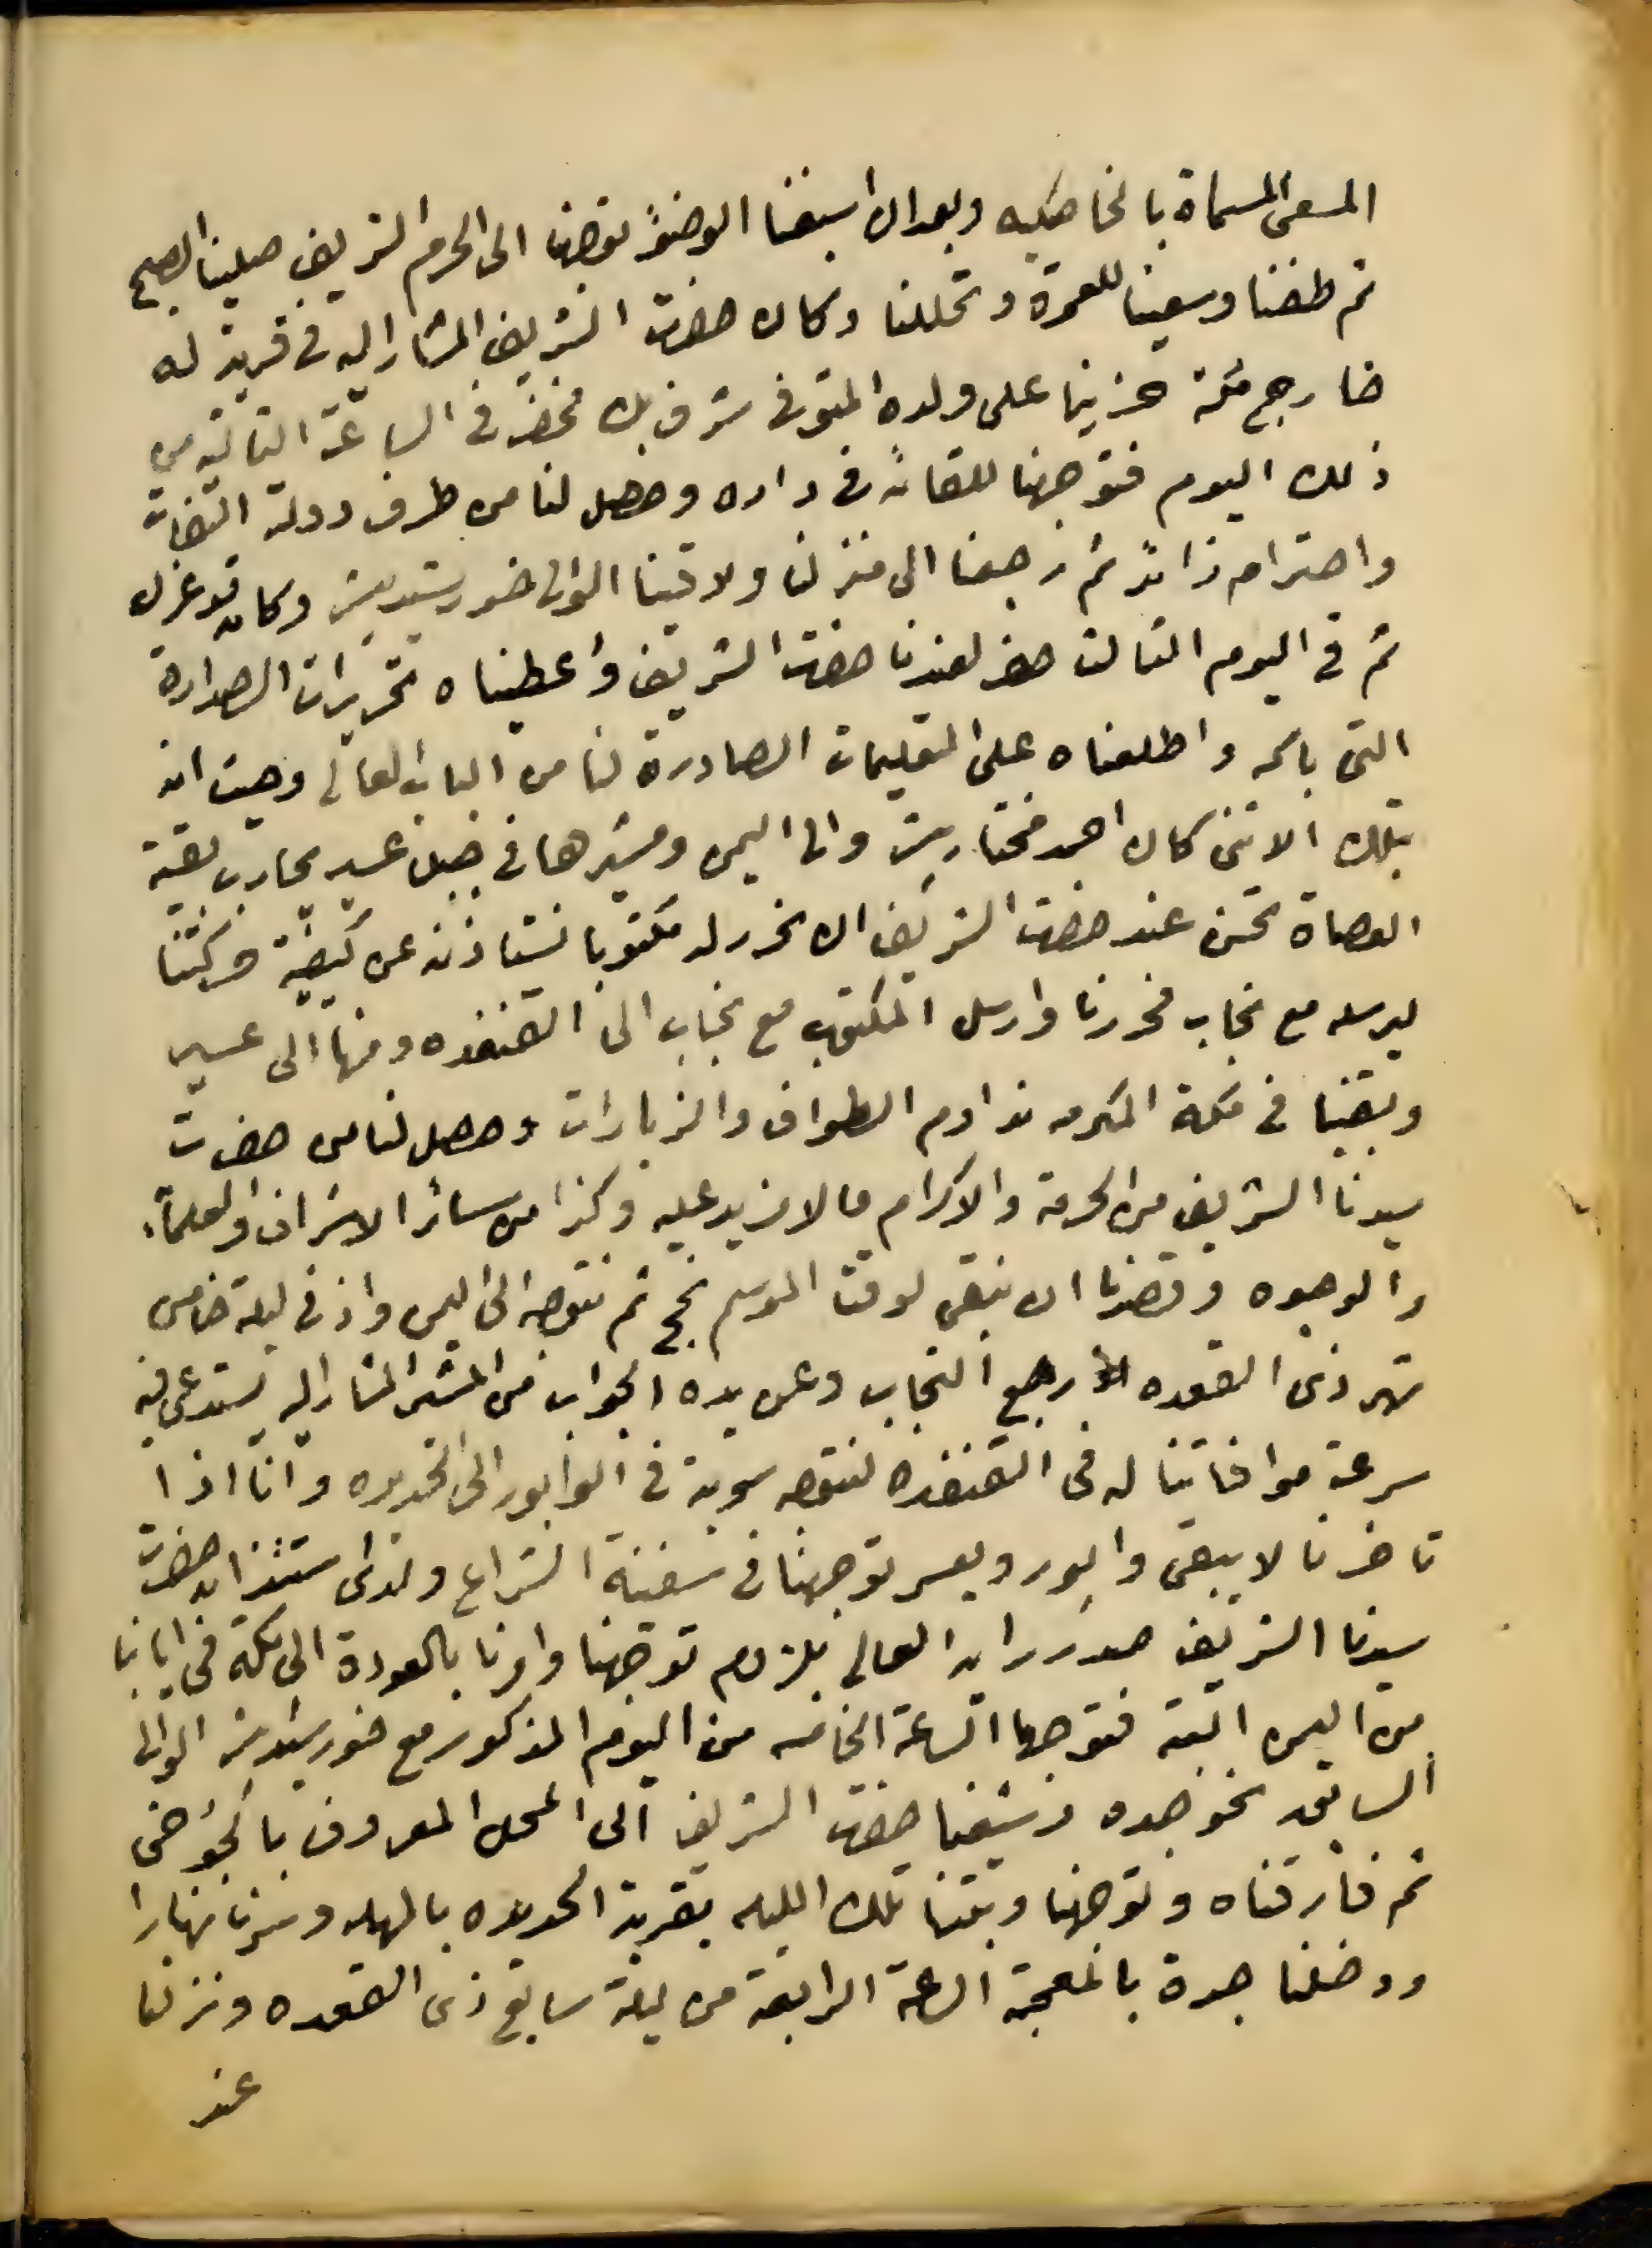 المسعى المسماة بالخاصكيه وبعد ان اسبغنا الوضوء توجهنا الى الحرم الشريف صلينا الصبح
ثم طفنا وسعينا للعمرة وتحللنا وكان حضرت الشريف المشار اليه فى قرية له
خارج مكة حزينا على ولده المتوفى شرف بك فحضر فى الساعة الثانيه من
ذلك اليوم فتوجهنا للقائه فى داره وحصل لنا من طرف دولته التفات
واحترام زائد ثم رجعنا الى منزلنا ولاقينا الوالى خورشيد پاشا وكان قد عزل
ثم فى اليوم الثالث حضر لعندنا حضرت الشريف وأعطيناه تحريرات الصدارة
التى باسمه واطلعناه على التعليمات الصادرة لنا من الباب العالى وحيث انه
بتلك الاثنى كان احمد مختار پاشا والى اليمن ومشيرها فى جبل عسير يحارب بقية
العصاة تحسن عند حضرت الشريف ان نحرر له مكتوبا نستأذنه عن كيفية حركتنا
ليرسله مع نجاب فحررنا وارسل المكتوب مع نجاب الى القنفده ومنها الى عسير
وبقينا فى مكة المكرمه نداوم الطواف والزيارات وحصل لنا من حضرت
سيدنا الشريف من الحرمة والاكرام ما لا مزيد عليه وكذا من سائر الاشراف والعلماء
والوجوه وقصدنا ان نبقى لوقت الموسم نحج ثم نتوجه الى اليمن واذ فى ليلة خامس
شهر ذى القعده رجع النجاب وعن يده الجواب من المشير المشار اليه يستدعى فيه
سرعة موافاتنا له فى القنفده لنتوجه سوية فى الوابور الى الحديده واننا اذا
تاخرنا لا يبقى وابور ويعسر توجهنا فى سفينة الشراع ولدى استئذان حضرت
سيدنا الشريف صدر رايه العالى بلزوم توجهنا وامرنا بالعودة الى مكة فى ايابنا
من اليمن البتة فتوجهنا الساعة الخامسه من اليوم المذكور مع خورشيد پاشا الوالى
السابق نحو جده وشيعنا حضرت الشريف الى المحل المعروف بالجوخى
ثم فارقناه وتوجهنا وبتنا تلك الليله بقرية الحديده بالمهله وسرنا نهارا
ودخلنا جدة بالمعجمة الساعة الرابعة من ليلة سابع ذى القعده ونزلنا
عند